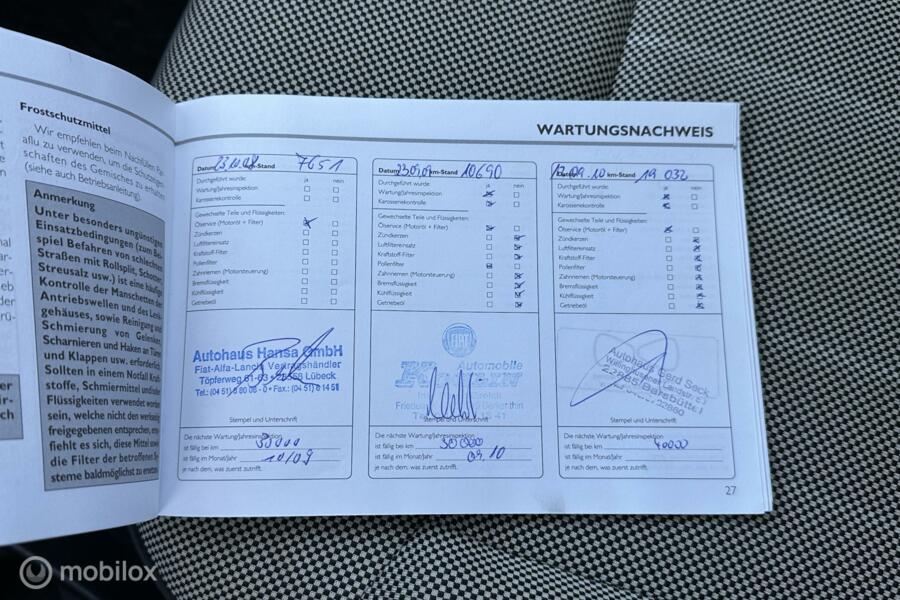 Frostschutzmittel
Wir empfehlen beim Nachfüllen Pa-
aflu zu verwenden, um die Schutzeigen-
schaften des Gemisches zu erhalten
(siehe auch Betriebsanleitung).
Anmerkung
Unter besonders ungünstigen
Einsatzbedingungen (zum Bei-
spiel Befahren von schlechten
Straßen mit Rollsplit, Schotter,
Streusalz usw.) ist eine häufige
Kontrolle der Manschetten der
Antriebswellen und des Lenk-
gehäuses, sowie Reinigung und
Schmierung von Gelenken,
Scharnieren und Haken an Türen
und Klappen usw. erforderlich.
Sollten in einem Notfall Kraft-
stoffe, Schmiermittel und/oder
Flüssigkeiten verwendet worden
sein, welche nicht den werkseitig
freigegebenen entsprechen, emp-
fiehlt es sich, diese Mittel sowie
die Filter der betroffenen Sy-
steme baldmöglichst zu ersetzen
WARTUNGSNACHWEIS
Datum 23.10.08 km-Stand 7651
Durchgeführt wurde: ja nein
Wartung/Jahresinspektion
Karosseriekontrolle
Gewechselte Teile und Flüssigkeiten:
Ölservice (Motoröl + Filter)
Zündkerzen
Luftfiltereinsatz
Kraftstoff-Filter
Pollenfilter
Zahnriemen (Motorsteuerung)
Bremsflüssigkeit
Kühlflüssigkeit
Getriebeöl
Autohaus Hansa GmbH
Fiat-Alfa-Lancia Vertragshändler
Töpferweg 61-63 Lübeck
Stempel und Unterschrift
Die nächste Wartung/Jahresinspektion
ist fällig bei km 30000
ist fällig im Monat/Jahr 10/09
je nach dem, was zuerst zutrifft.
Datum 23.09.09 km-Stand 10690
Durchgeführt wurde: ja nein
Wartung/Jahresinspektion
Karosseriekontrolle
Gewechselte Teile und Flüssigkeiten:
Ölservice (Motoröl + Filter)
Zündkerzen
Luftfiltereinsatz
Kraftstoff-Filter
Pollenfilter
Zahnriemen (Motorsteuerung)
Bremsflüssigkeit
Kühlflüssigkeit
Getriebeöl
FIAT
Automobile
Stempel und Unterschrift
Die nächste Wartung/Jahresinspektion
ist fällig bei km 30000
ist fällig im Monat/Jahr 09.10
je nach dem, was zuerst zutrifft.
09.10 km-Stand 19 032
Durchgeführt wurde: ja nein
Wartung/Jahresinspektion
Karosseriekontrolle
Gewechselte Teile und Flüssigkeiten:
Ölservice (Motoröl + Filter)
Zündkerzen
Luftfiltereinsatz
Kraftstoff-Filter
Pollenfilter
Zahnriemen (Motorsteuerung)
Bremsflüssigkeit
Kühlflüssigkeit
Getriebeöl
Autohaus Gerd Seck
22885 Barsbüttel
Stempel und Unterschrift
Die nächste Wartung/Jahresinspektion
ist fällig bei km 40000
ist fällig im Monat/Jahr
je nach dem, was zuerst zutrifft.
27
mobilox